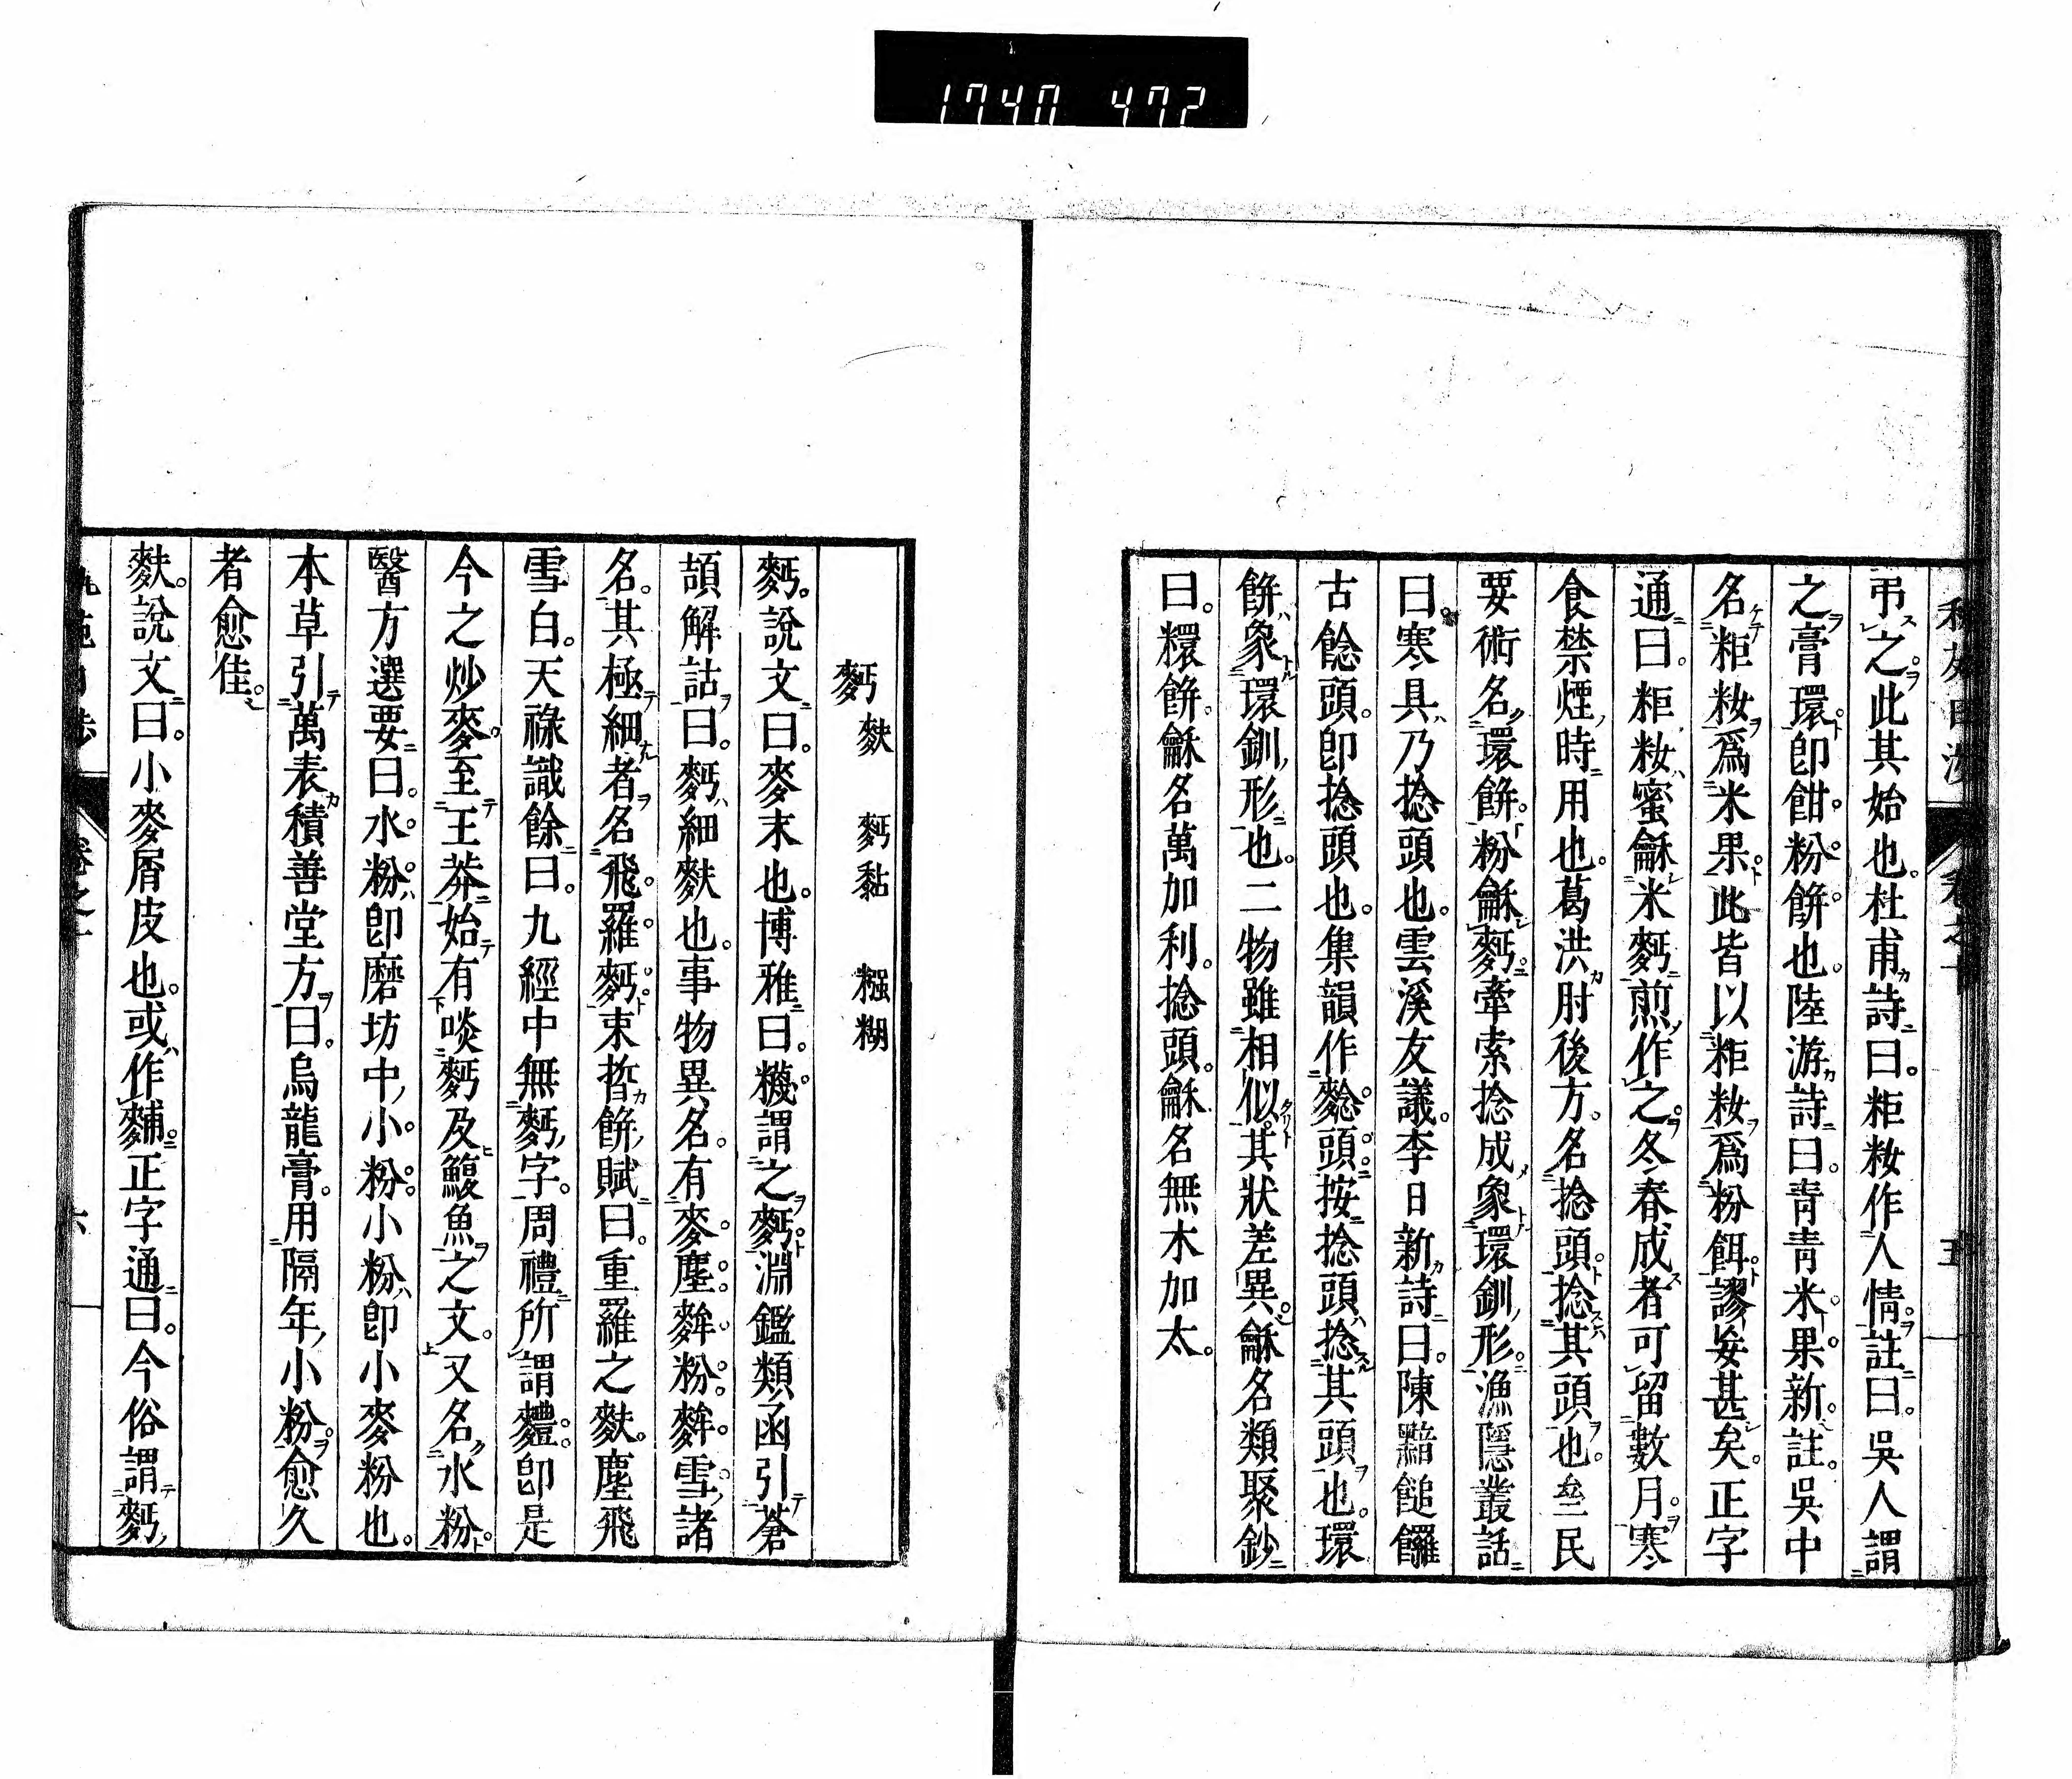 1740 472
弔之。此其始也。杜甫詩曰。粔籹作人情。註曰。吳人謂
之膏環。卽餡粉餅也。陸游詩曰。靑靑米果新。註。吳中
名粔籹爲米果。此皆以粔籹爲粉餌。謬妄甚矣。正字
通曰。粔籹蜜龢米麪煎作之。冬春成者可留數月。寒
食禁煙時用也。葛洪肘後方。名捻頭。捻其頭也。齊民
要術名環餅。粉龢麪牽索捻成象環釧形。漁隱叢話
曰。寒具乃捻頭也。雲溪友議。李日新詩曰。陳黯䭔䭩
古餄頭。卽捻頭也。集韻作䴴頭。按捻頭捻其頭也。環
餅象環釧形也。二物雖相似。其狀差異。龢名類聚鈔
曰。糫餅。龢名萬加利。捻頭。龢名無木加太。
五
麪 麩 麪黏 糨糊
麪。說文曰。麥末也。博雅曰。䊳謂之麪。淵鑑類函引蒼
頡解詁曰。麪細麩也。事物異名。有麥塵。麰粉。麰雪。諸
名。其極細者名飛羅麪。束晳餅賦曰。重羅之麩。塵飛
雪白。天祿識餘曰。九經中無麪字。周禮所謂麷。卽是
今之炒麥。至王莽始有啖麪及鰒魚之文。又名水粉。
醫方選要曰。水粉。卽磨坊中小粉。小粉卽小麥粉也。
本草引萬表積善堂方曰。烏龍膏。用隔年小粉。愈久
者愈佳。
麩。說文曰。小麥屑皮也。或作䴺。正字通曰。今俗謂麪
六